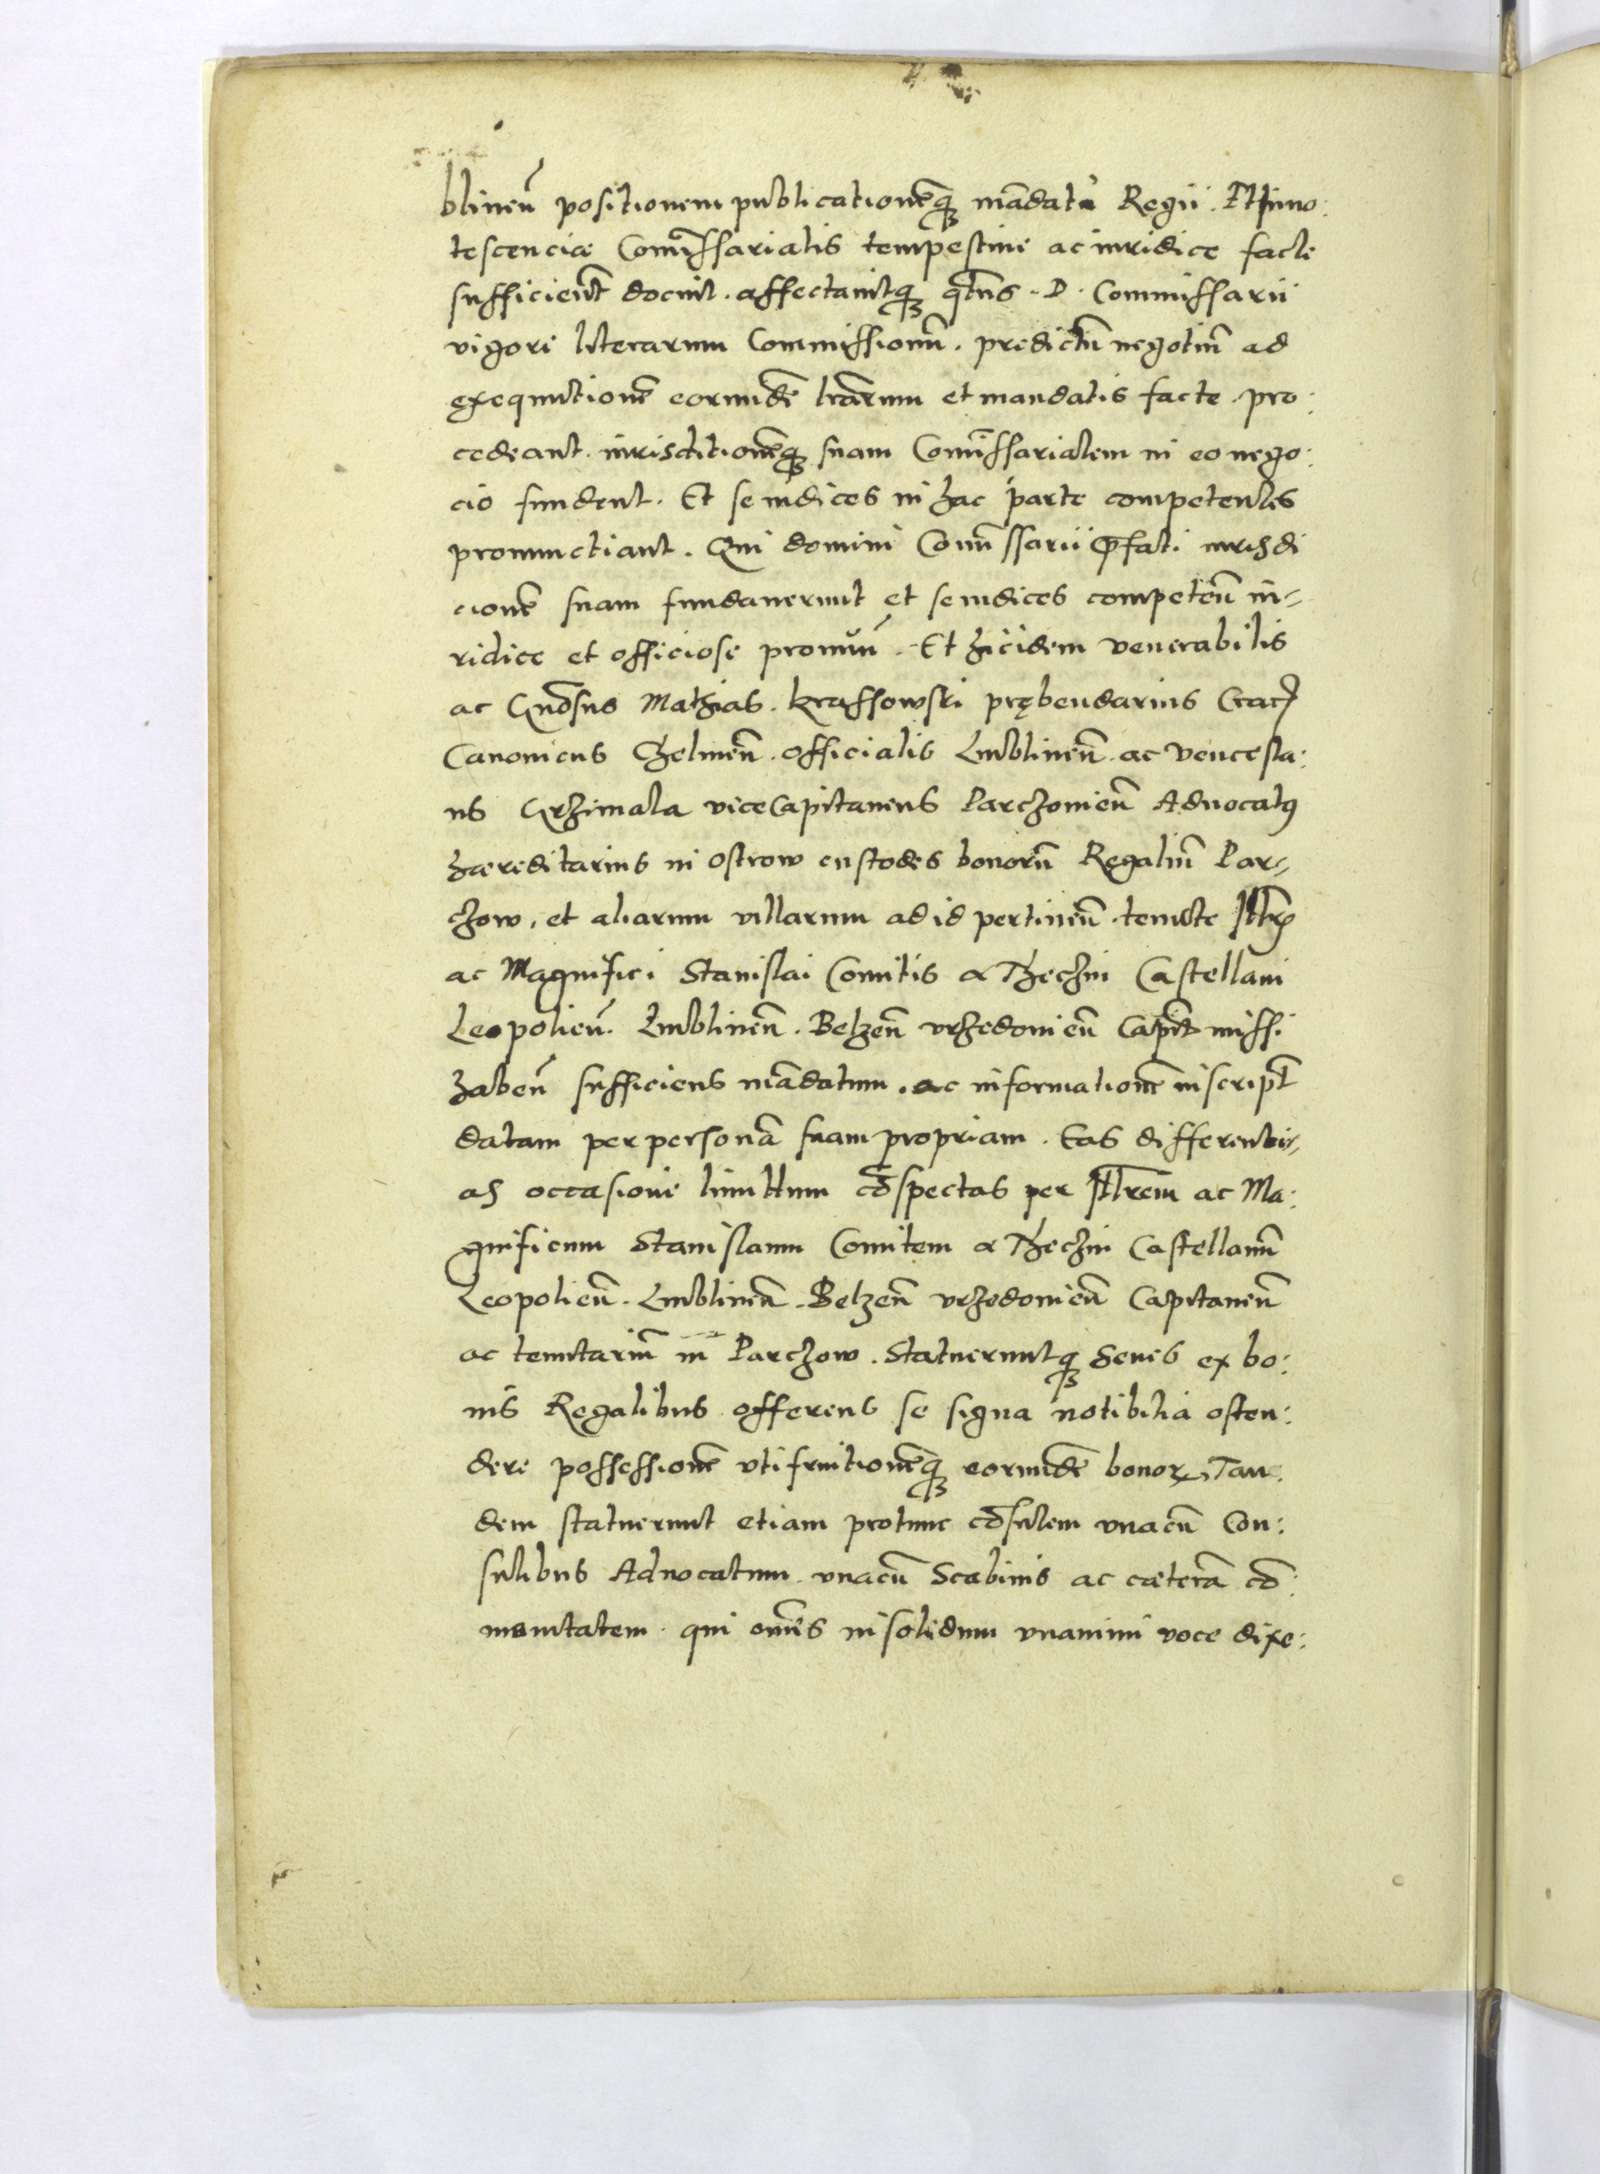 blineñ positionem publicationẽq mãdati Regii. Et inno:
tescenciæ Comissarialis tempestive ac iuridice facte
sufficieñt docuit. affectavitq qtñs. D. Commissarii
vigore literarum Commissionũ. predictũ negotiũ ad
exequutionẽ eorundẽ lrãrum et mandatis facte. pro:
cedeant. iurisditionẽq suam Comissarialem in eo nego:
cio fundent. Et se iudices in hac parte competentes
pronunctiant. Qui domini Comissarii pfati iurisdi
cionẽ suam fundaverunt et se iudices competeñ iu-
ridice et officiose pronuñ. Et hic idem venerabilis
ac Gñosus Mathias. Krassowski prębendarius Crac
Canonicus Chelmeñ. officialis Lublineñ. ac Vencesla:
us Grzimala viceCapitaneus Parchovieñ Advocatq
hæreditarius in Ostrow custodes bonorũ Regaliũ Par-
chow. et aliarum villarum ad id pertineñ. tenute Illtr
ac Magnifici Stanislai Comitis a Thechin Castellani
Leopolieñ. Lublineñ. Belzeñ urzedovieñ Capit missi
habeñ sufficiens mãdatum. ac informationẽ in script
datam per personã suam propriam. Eas differenti-
as occasione limitum cõspectas per Illtrem ac Ma:
gnificum Stanislaum Comitem a Thechin Castellanũ
Leopolieñ. Lublineñ. Belzeñ vrzedovieñ Capitaneũ
ac tenutariũ in Parchow. Statueruntq Senes ex bo:
nis Regalibus offerens se signa notibilia osten:
dere possessionẽ utifruitionẽq eorundẽ bonor. Tan:
dem statuerunt etiam protunc cõsulem unacũ Con:
sulibus Advocatum. unacũ Scabinis ac cæterã cõ:
munitatem. qui omẽs in solidum unanimi voce dixe: